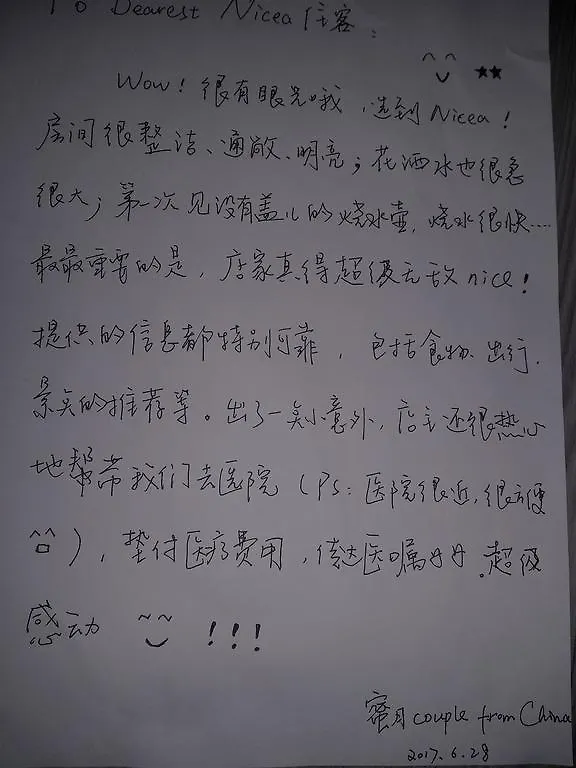 To Dearest Nicea 住客:
Wow! 很有眼光哦, 选到Nicea!
房间很整洁、通敞、明亮; 花洒水也很急
很大; 第一次见没有盖儿的烧水壶, 烧水很快……
最最重要的是, 店家真得超级无敌nice!
提供的信息都特别可靠, 包括食物、出行、
景点的推荐等。出了一点小意外, 店主还很热心
地帮带我们去医院 (PS: 医院很近, 很方便
^^), 垫付医疗费用, 传达医嘱. 超级
感动 ~~ !!!
蜜月couple from China
2017.6.28